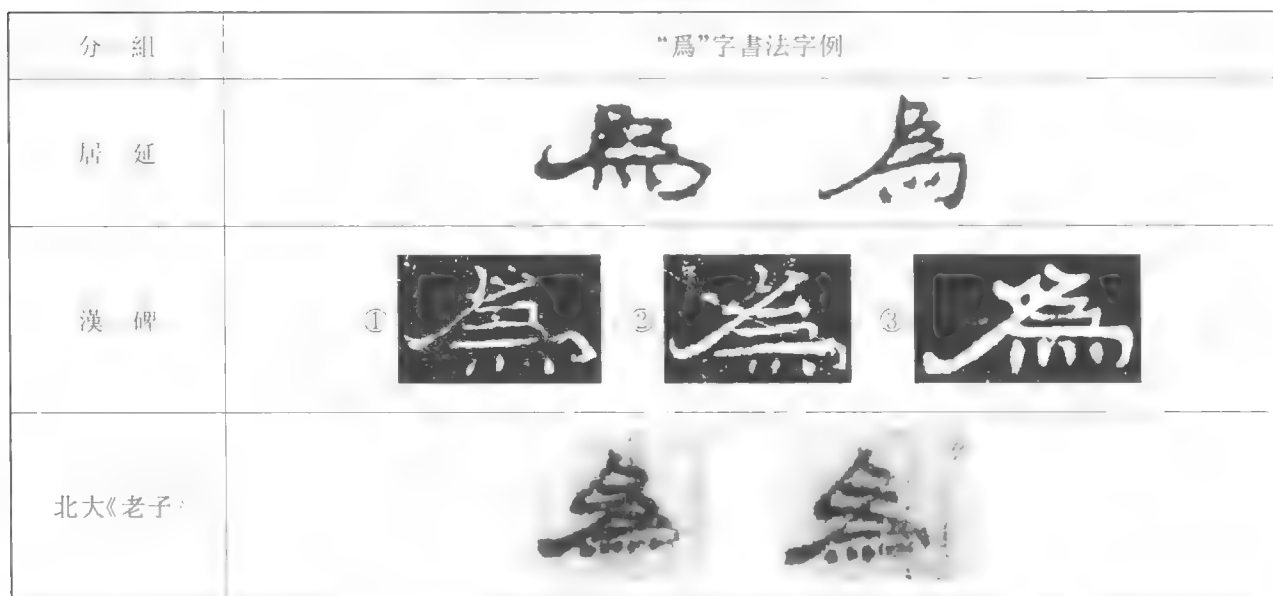 分組 “爲”字書法字例
居延 爲 爲
漢碑 ① 爲 ② 爲 ③ 爲
北大《老子》 爲 爲